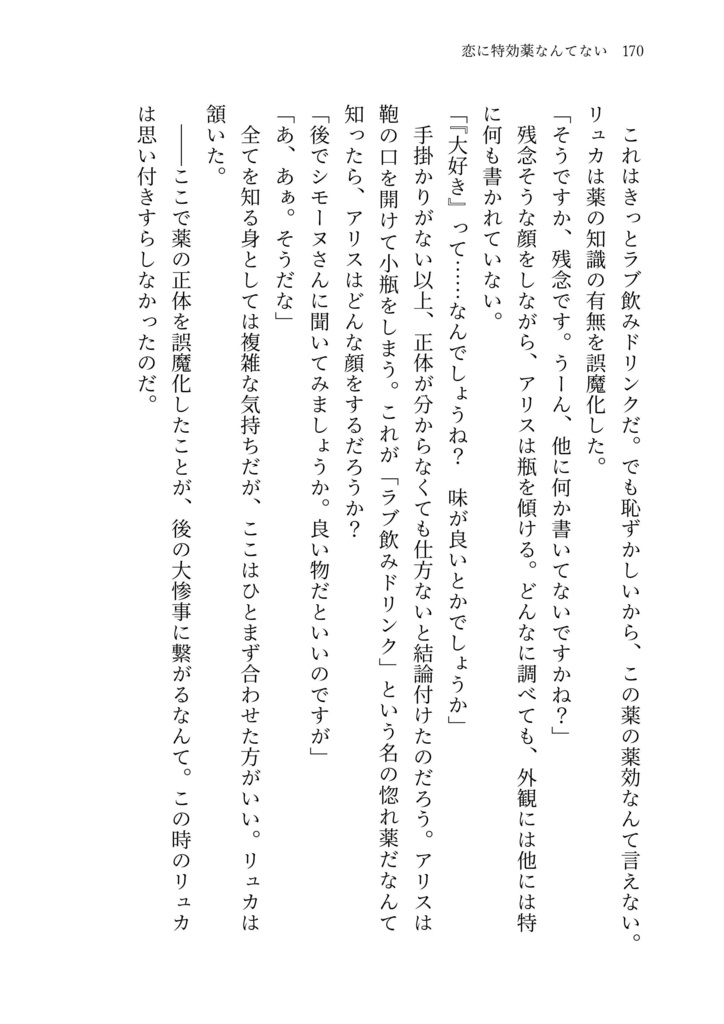 恋に特効薬なんてない 170
　これはきっとラブ飲みドリンクだ。でも恥ずかしいから、この薬の薬効なんて言えない。
リュカは薬の知識の有無を誤魔化した。
「そうですか、残念です。うーん、他に何か書いてないですかね？」
　残念そうな顔をしながら、アリスは瓶を傾ける。どんなに調べても、外観には他には特
に何も書かれていない。
「『大好き』って……なんでしょうね？　味が良いとかでしょうか」
　手掛かりがない以上、正体が分からなくても仕方ないと結論付けたのだろう。アリスは
鞄の口を開けて小瓶をしまう。これが「ラブ飲みドリンク」という名の惚れ薬だなんて
知ったら、アリスはどんな顔をするだろうか？
「後でシモーヌさんに聞いてみましょうか。良い物だといいのですが」
「あ、あぁ。そうだな」
　全てを知る身としては複雑な気持ちだが、ここはひとまず合わせた方がいい。リュカは
頷いた。
　――ここで薬の正体を誤魔化したことが、後の大惨事に繋がるなんて。この時のリュカ
は思い付きすらしなかったのだ。